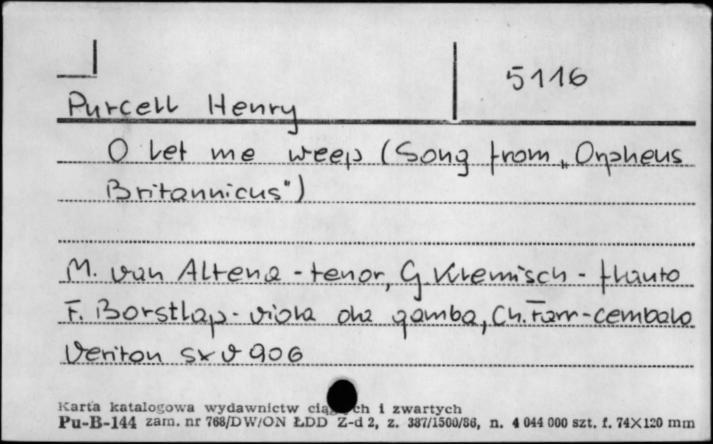 5116
Purcell Henry
O let me weep (Song from „Orpheus
Britannicus")
M. van Altena - tenor, G. Kremisch - flauto
F. Borstlap - viola da gamba, Ch. Farr - cembalo
Veriton sxv 906
Karta katalogowa wydawnictw ch i zwartych
Pu-B-144 zam. nr 768/DW/ON ŁDD Z-d 2, z. 387/1500/86, n. 4 044 000 szt. f. 74×120 mm